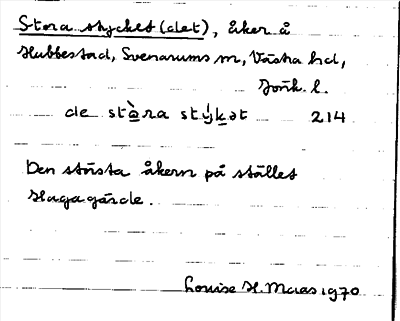 Stora stycket (det), åker å
Hubbestad, Svenarums sn, Västra hd,
Jönk. l.
de stò̱ra stýḵət 214
Den största åkern på stället
Hagagärde.
Louise H. Maas 1970